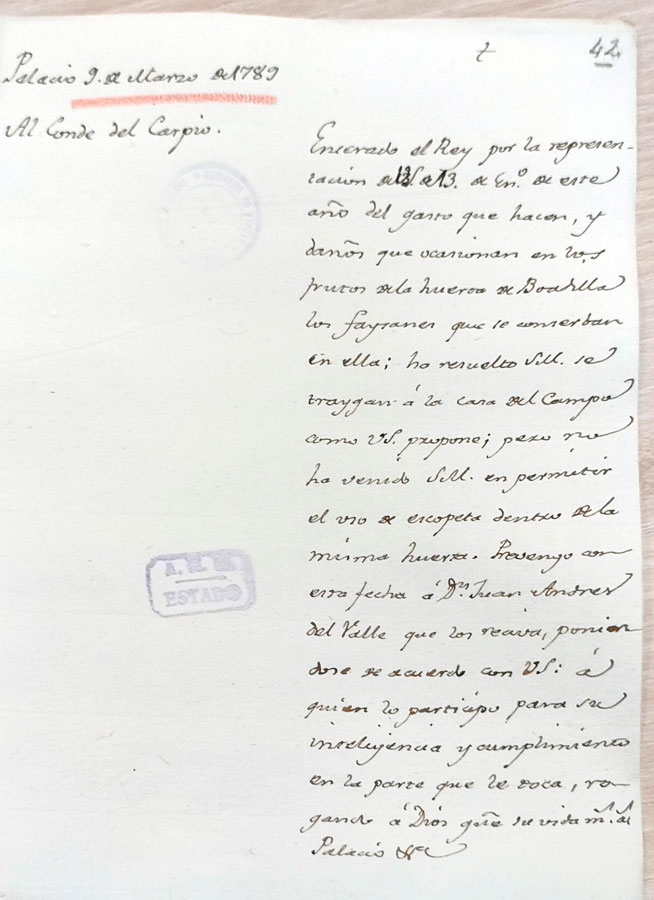 42
Palacio 9. de Marzo de 1789
Al Conde del Carpio.
Enterado el Rey por la represen-
tacion de V.S. de 13. de En.º de este
año del gasto que hacen, y
daños que ocasionan en los
frutos de la huerta de Boadilla
los faysanes que se conserban
en ella; ha resuelto S.M. se
traygan á la casa del Campo
como VS. propone; pero no
ha venido S.M. en permitir
el uso de escopeta dentro de la
misma huerta. Prevengo con
esta fecha á Dn. Juan Andres
del Valle que los reciva, ponien
dose de acuerdo con VS: á
quien lo participo para su
inteligencia y cumplimiento
en la parte que le toca, ro-
gando á Dios que su vida ms. as.
Palacio &a
A. H. N.
ESTADO